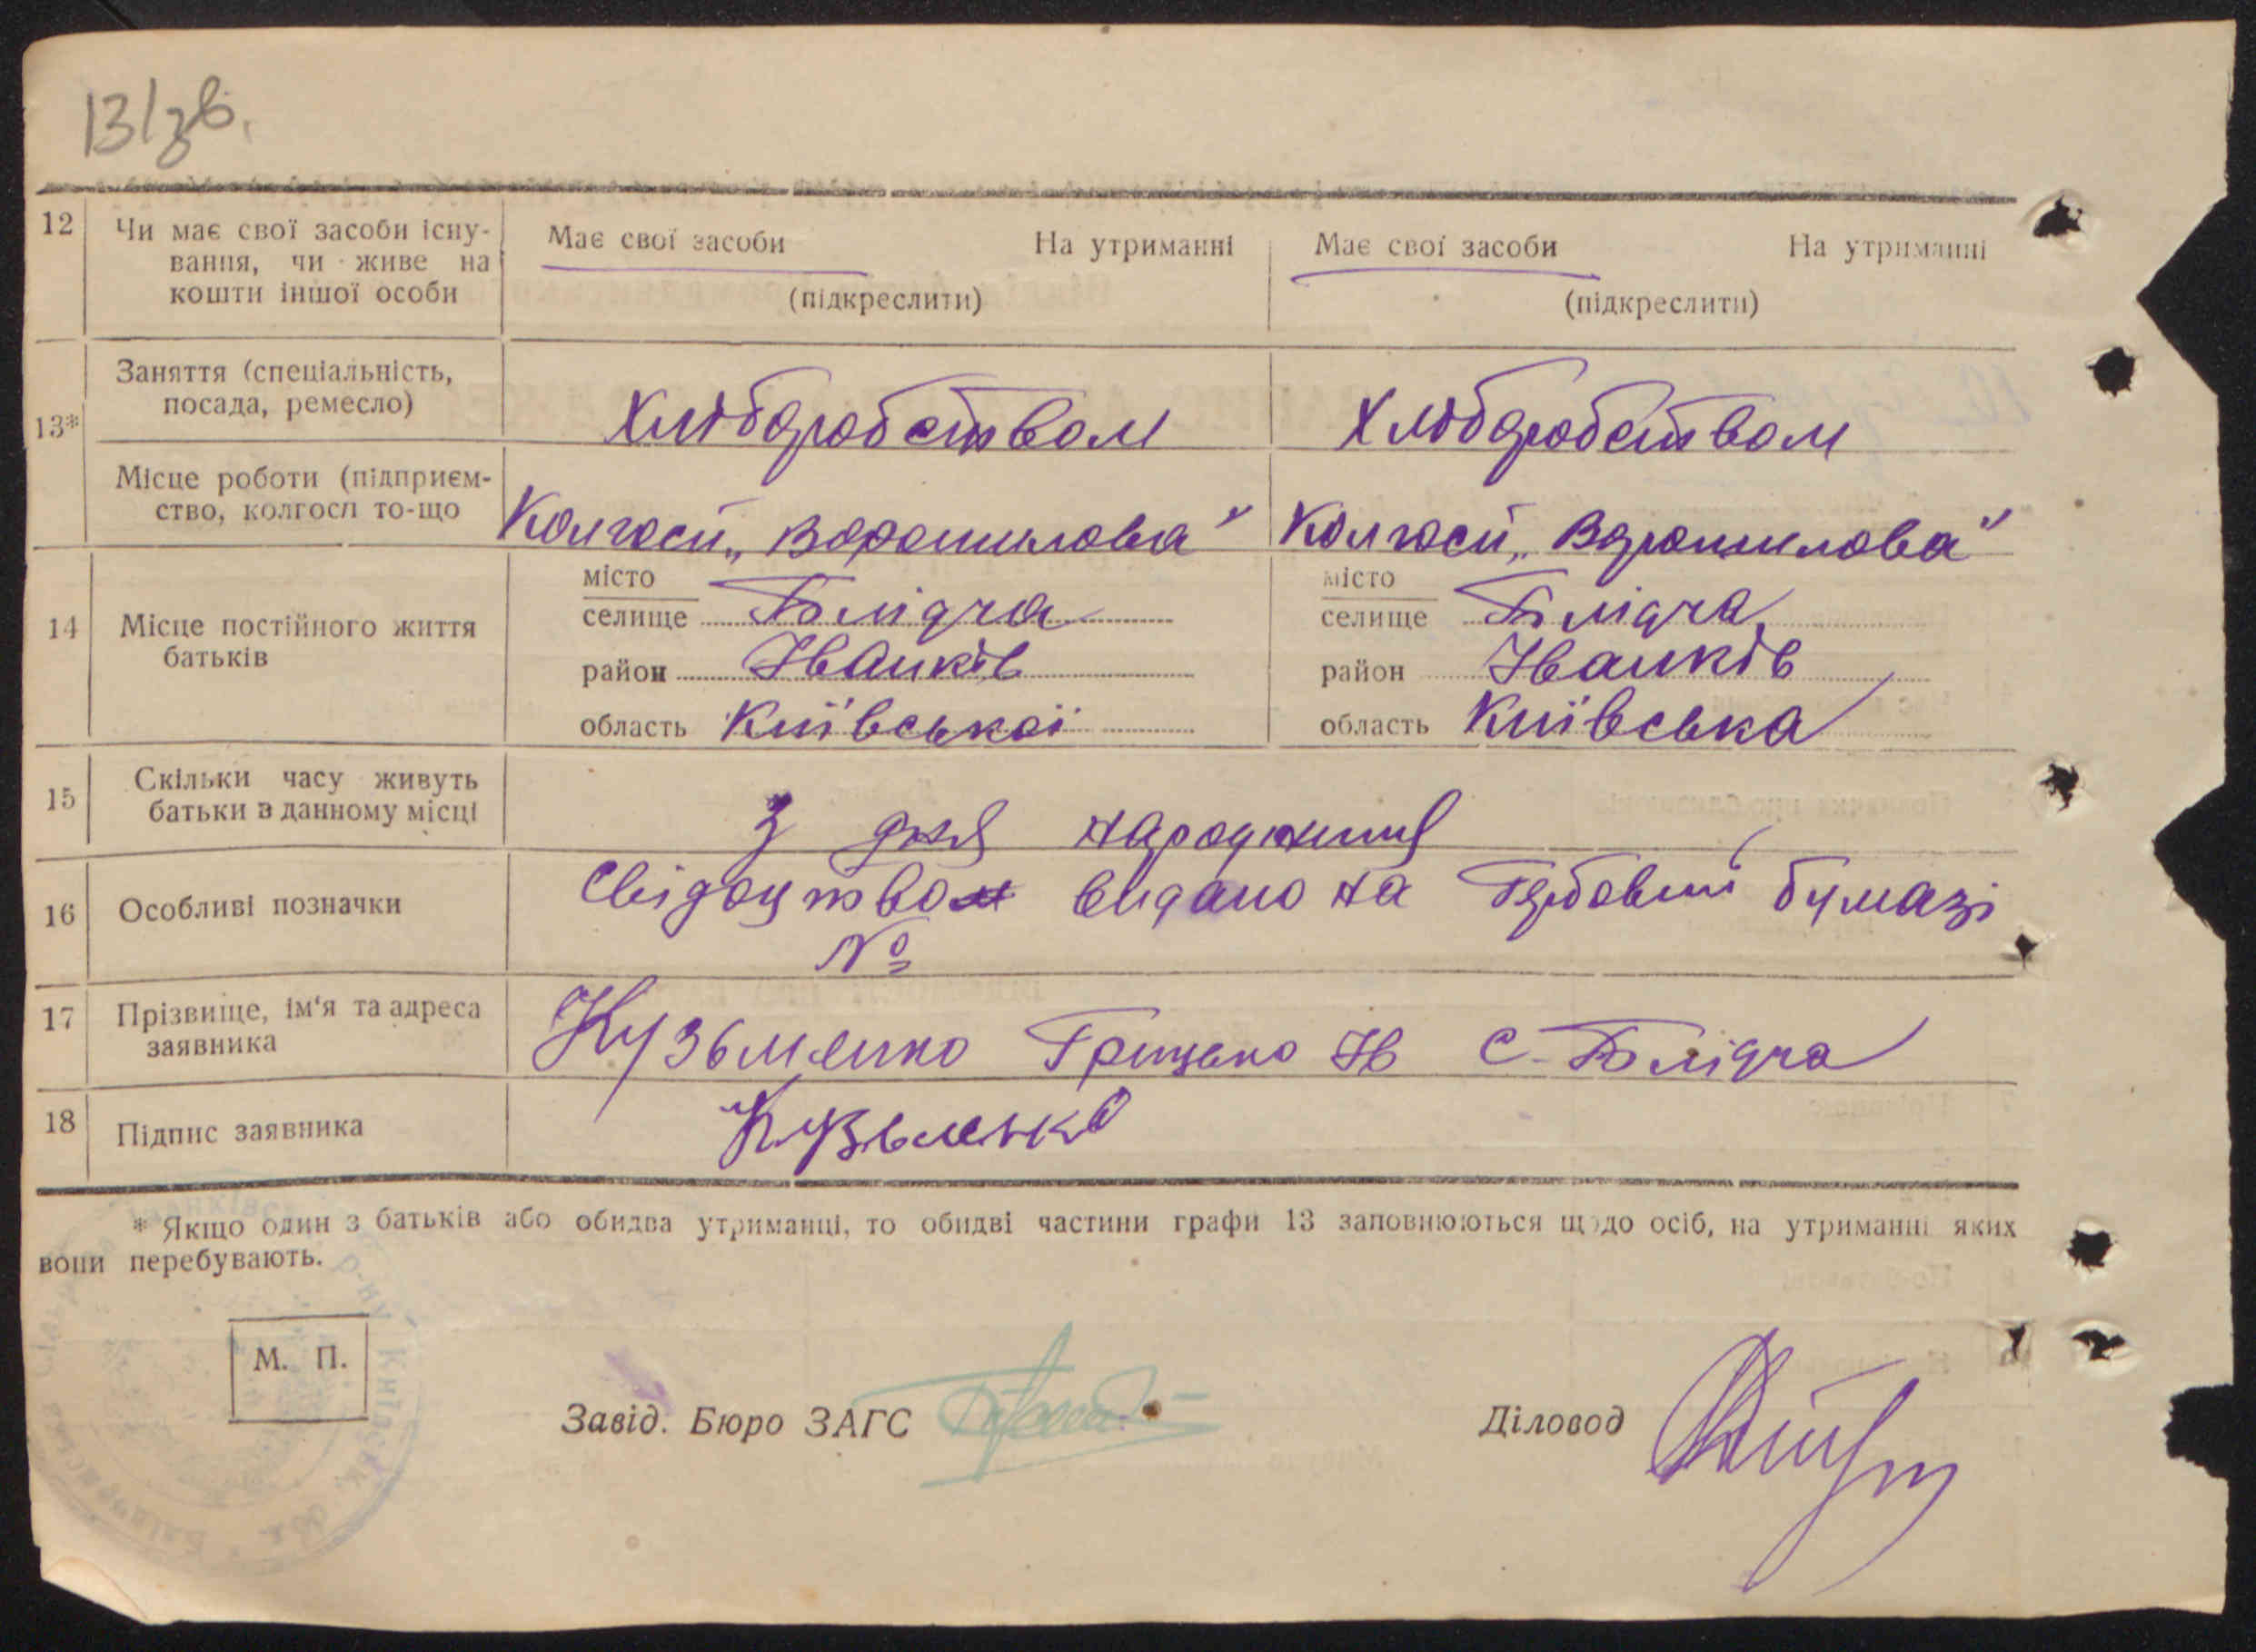 13/зв.
12 Чи має свої засоби існу-
вання, чи живе на
кошти іншої особи
Має свої засоби На утриманні
(підкреслити)
Має свої засоби На утриманні
(підкреслити)
13* Заняття (спеціальність,
посада, ремесло)
Хлібробством Хлібробством
Місце роботи (підприєм-
ство, колгосп то-що
Колгосп „Ворошилова" Колгосп „Ворошилова"
14 Місце постійного життя
батьків
місто
селище Блідча
район Іванків
область Київської
місто
селище Блідча
район Іванків
область Київська
15 Скільки часу живуть
батьки в данному місці
З дня народження
16 Особливі позначки
Свідоцтво видано на Гербовій бумазі
№
17 Прізвище, ім'я та адреса
заявника
Кузьменко Грицько Ів с. Блідча
18 Підпис заявника
Кузьменко
* Якщо один з батьків або обидва утриманці, то обидві частини графи 13 заповнюються щодо осіб, на утриманні яких
вони перебувають.
М. П.
Завід. Бюро ЗАГС
Діловод